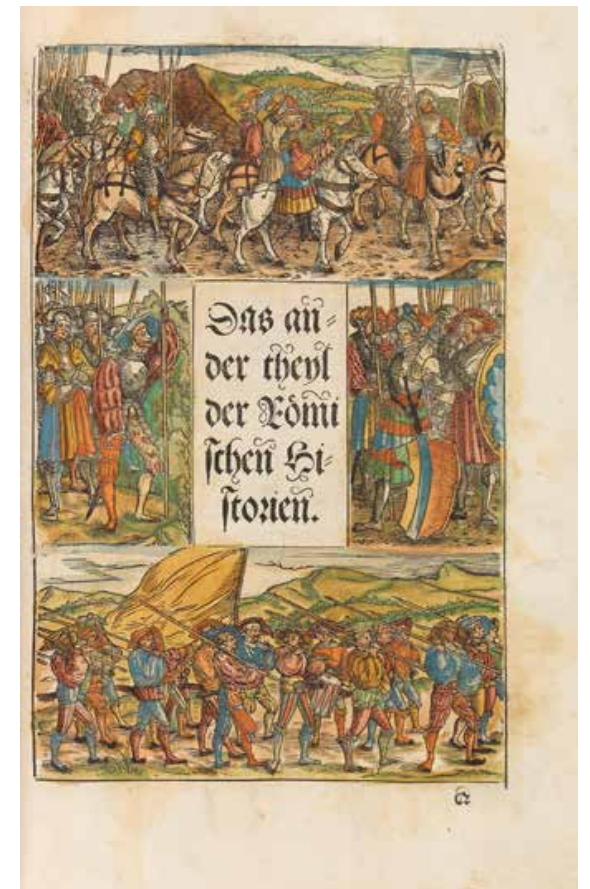 Das añ⸗
der theyl
der Römi
schen̄ Hi⸗
storien̄.